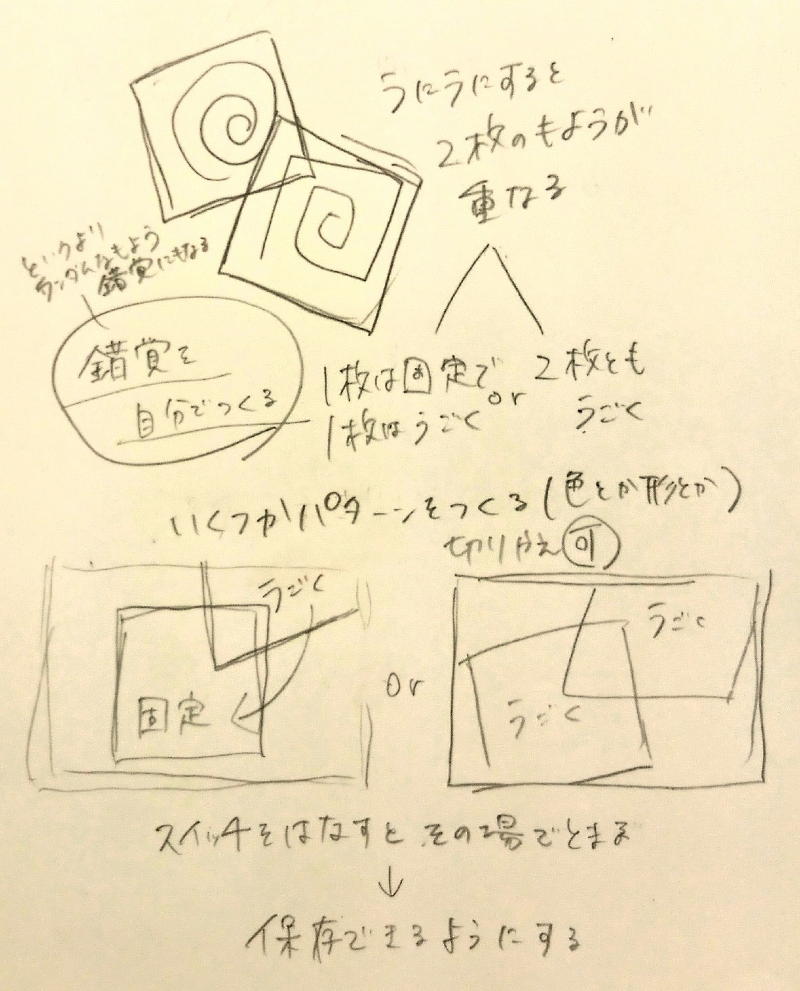 うにうにすると
2枚のもようが
重なる
というより
ランダムなもよう
錯覚にもなる
錯覚を
自分でつくる
1枚は固定で
1枚はうごく
or
2枚とも
うごく
いくつかパターンをつくる(色とか形とか)
切りかえ可
うごく
固定
or
うごく
うごく
スイッチをはなすとその場でとまる
↓
保存できるようにする